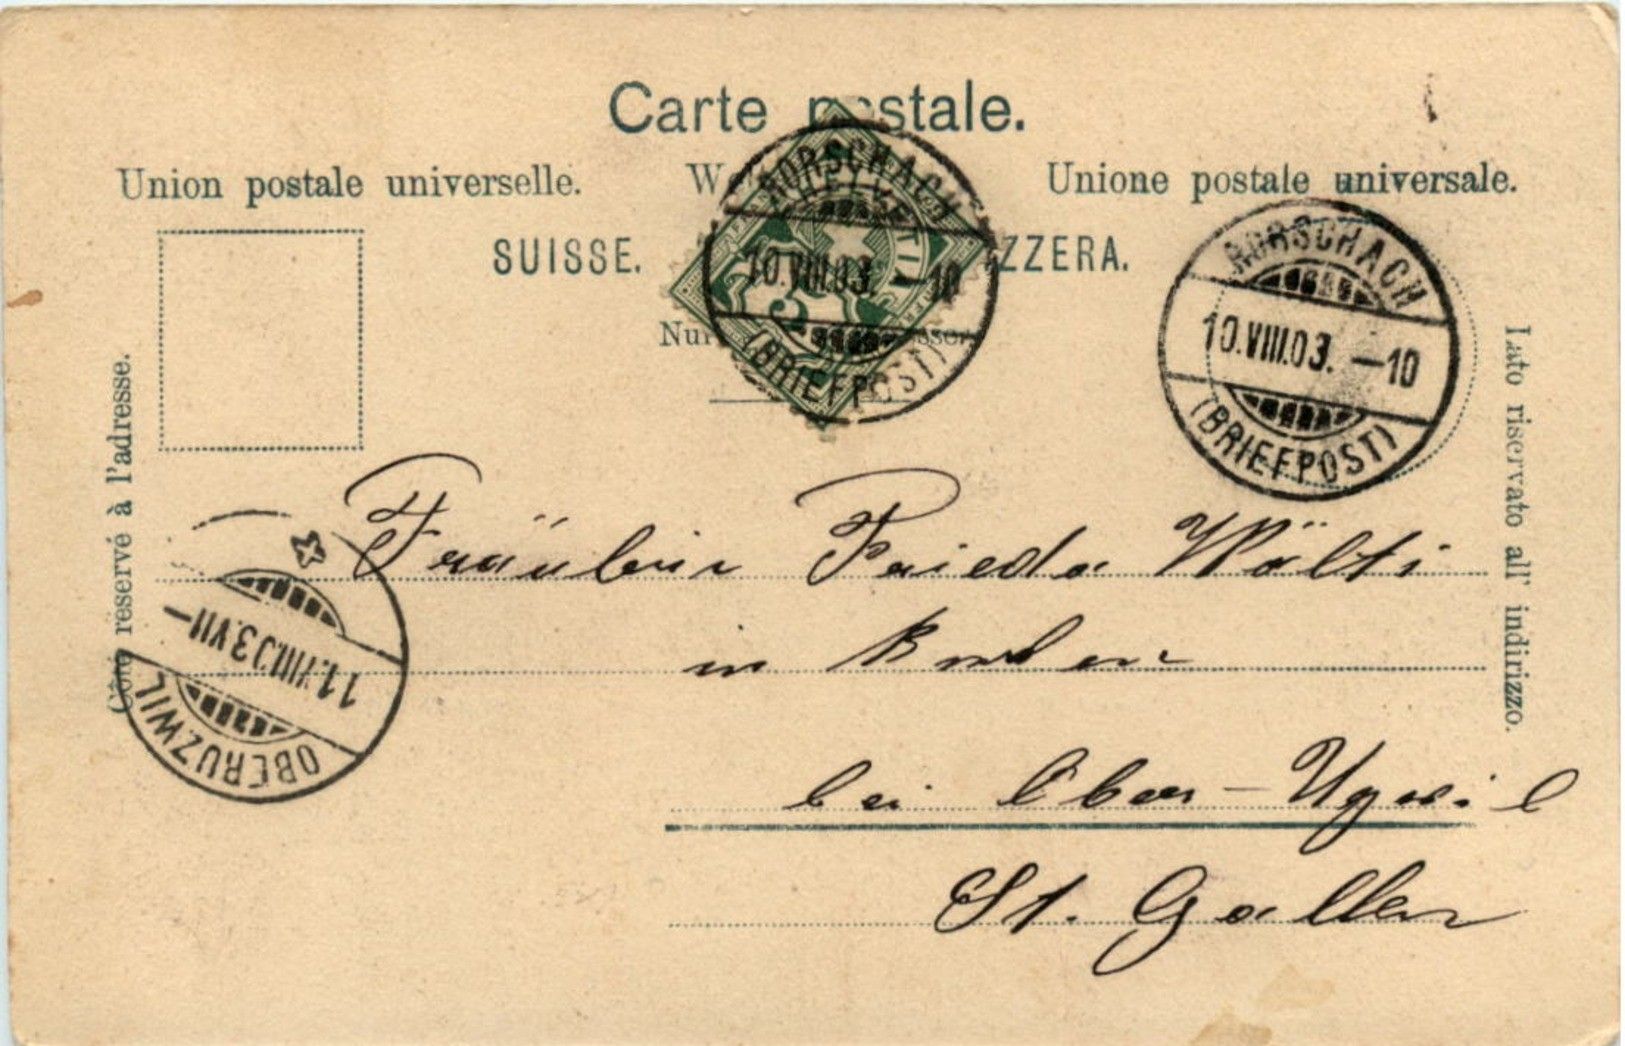 Carte postale.
Union postale universelle. Unione postale universale.
SUISSE. ZZERA.
Nur
Côté reservé à l'adresse.
Lato riservato all' indirizzo.
RORSCHACH
10.VIII.03. –10
(BRIEFPOST)
RORSCHACH
10.VIII.03. –10
(BRIEFPOST)
11.VIII.03.VII–
OBERUZWIL
Fräulein Frieda Wälti
in
bei Ober-Uzwil
St. Gallen